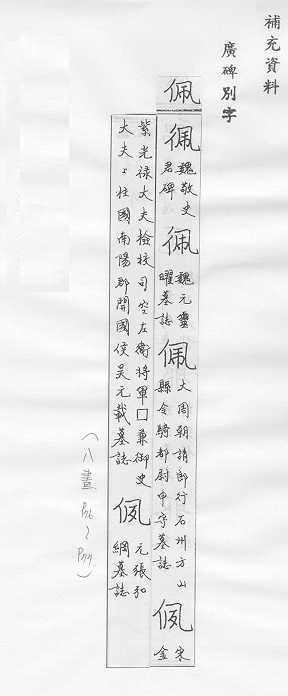 補充資料
廣碑別字
佩
𢓜 魏敬史君碑
佩 魏元靈曜墓誌
佩 大周朝請郎行石州方山縣令騎都尉申守墓誌
佩 宋金
紫光祿大夫檢校司空左衛將軍□兼御史大夫上柱國南陽郡開國侯吴元載墓誌
佩 元張弘綱墓誌
(八畫 P76~P77)